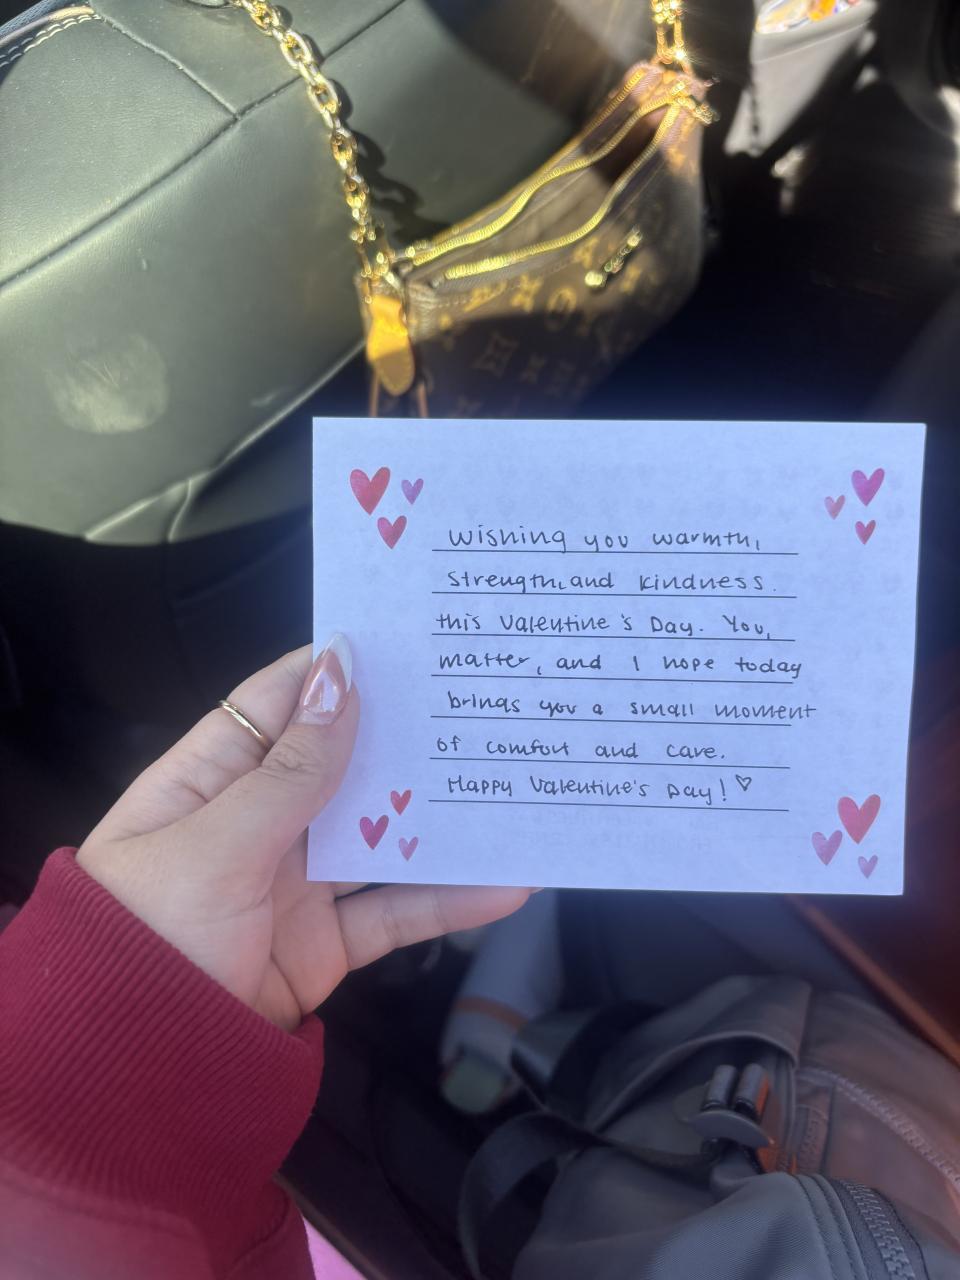 Wishing you warmth,
strength, and kindness.
this Valentine's Day. You,
matter, and I hope today
brings you a small moment
of comfort and care.
Happy Valentine's Day! ♡